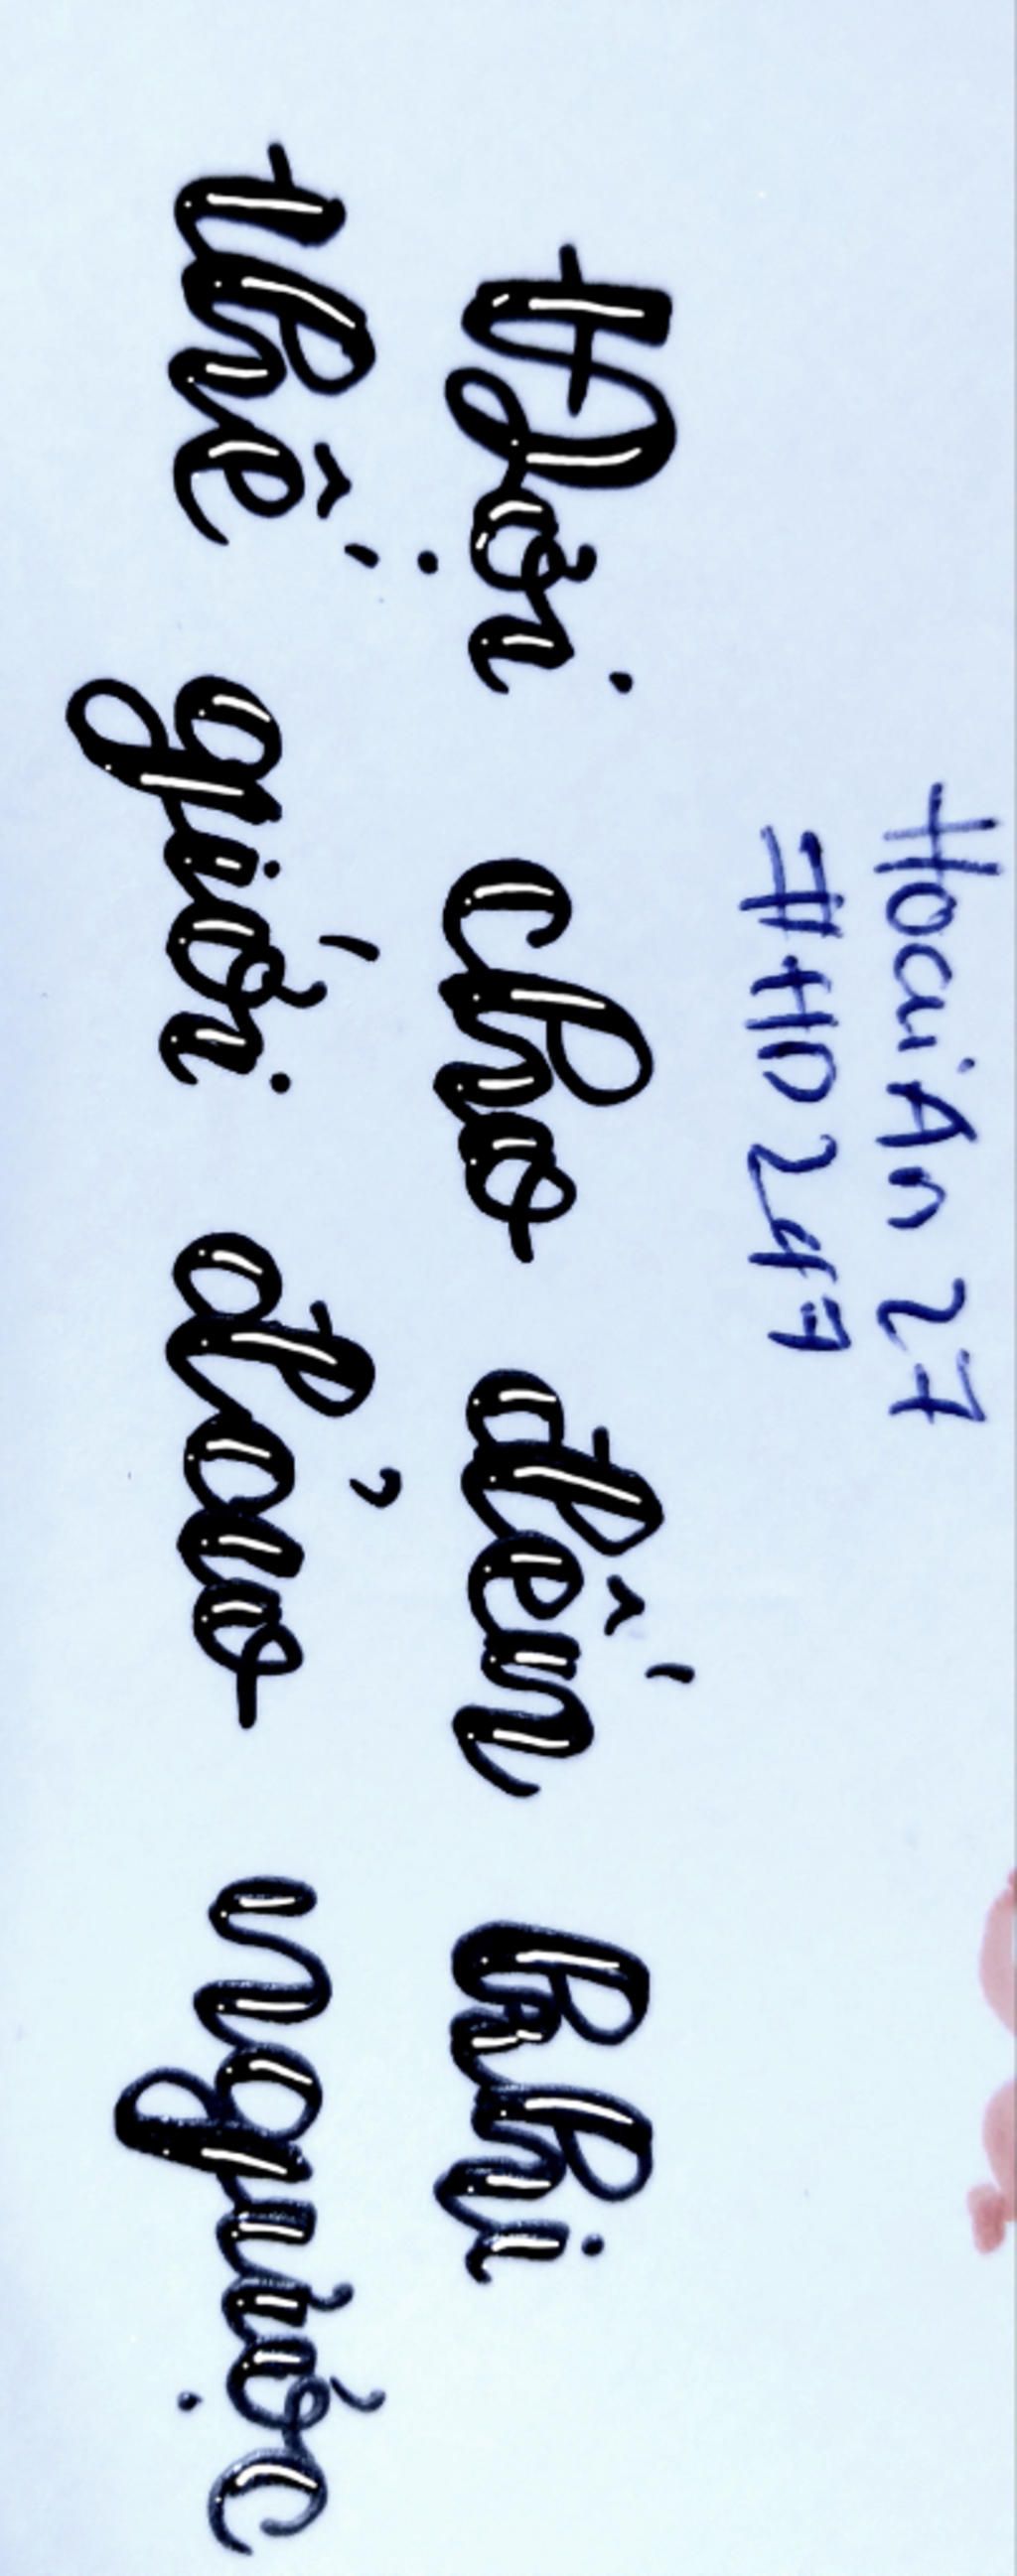 Hoài An 27
#HD247
Đợi cho đến khi
thế giới đảo ngược